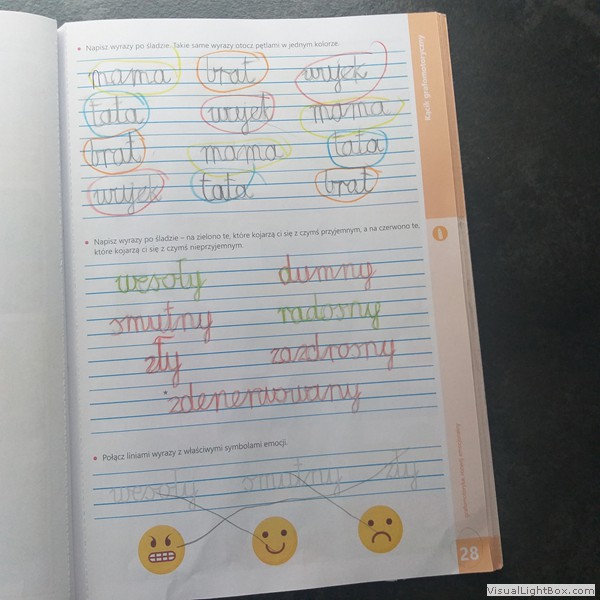 • Napisz wyrazy po śladzie. Takie same wyrazy otocz pętlami w jednym kolorze.
mama brat wujek
tata wujek mama
brat mama tata
wujek tata brat
• Napisz wyrazy po śladzie – na zielono te, które kojarzą ci się z czymś przyjemnym, a na czerwono te,
które kojarzą ci się z czymś nieprzyjemnym.
wesoły dumny
smutny radosny
zły zazdrosny
zdenerwowany
• Połącz liniami wyrazy z właściwymi symbolami emocji.
wesoły smutny zły
Kącik grafomotoryczny
28
VisualLightBox.com